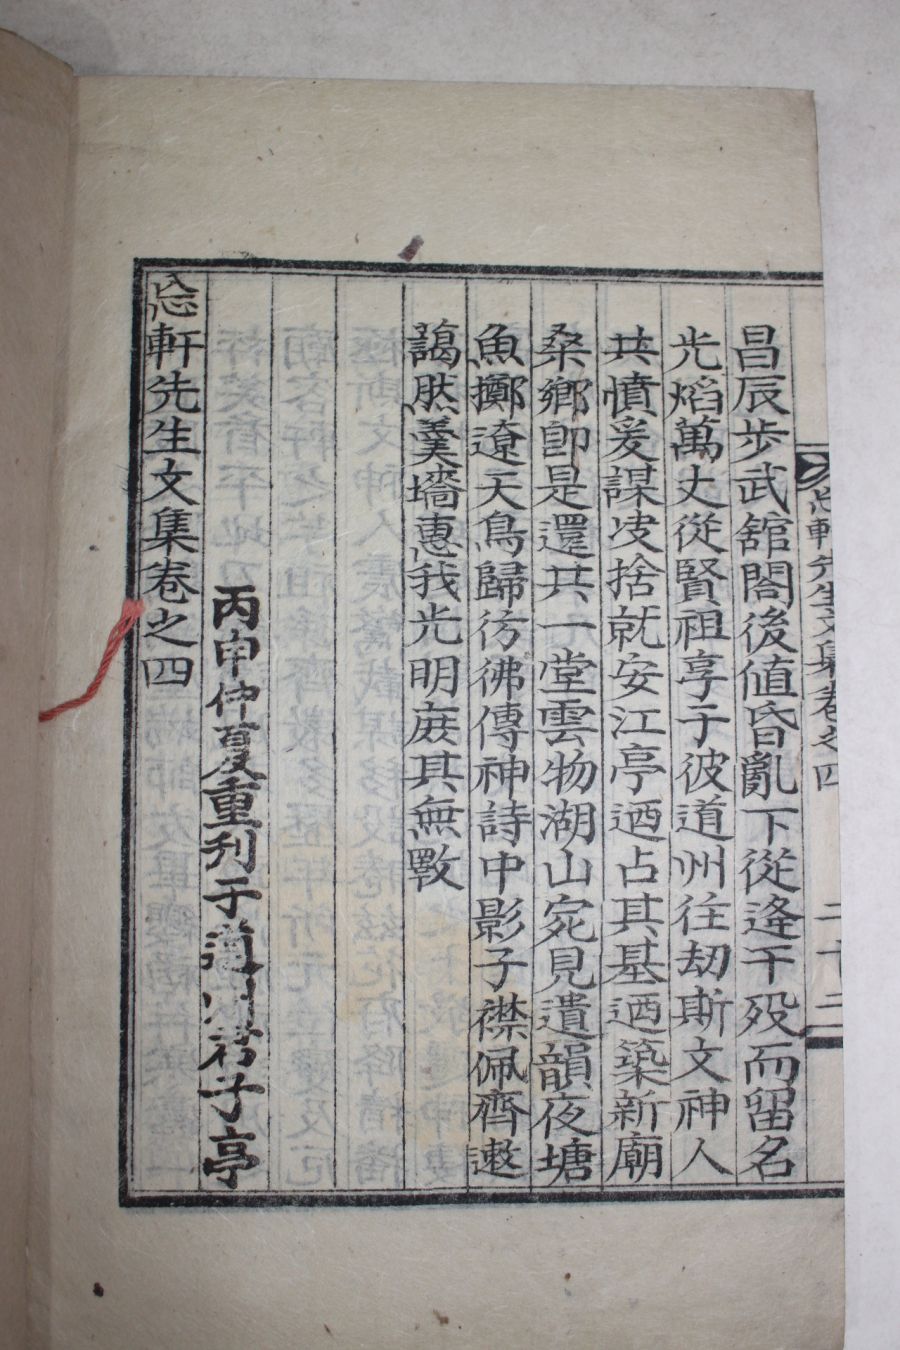 㤀軒先生文集卷之四
二十二
昌辰步武舘閤後値昏亂下從逄干歿而留名
光熖萬丈從賢祖享于彼道州往劫斯文神人
共憤爰謀皮捨就安江亭廼占其基廼築新廟
桑鄕卽是還共一堂雲物湖山宛見遺韻夜塘
魚擲遼天鳥歸彷彿傳神詩中影子襟佩齊遬
藹然羹墻惠我光明庶其無斁
丙申仲夏重刊于道州君子亭
㤀軒先生文集卷之四